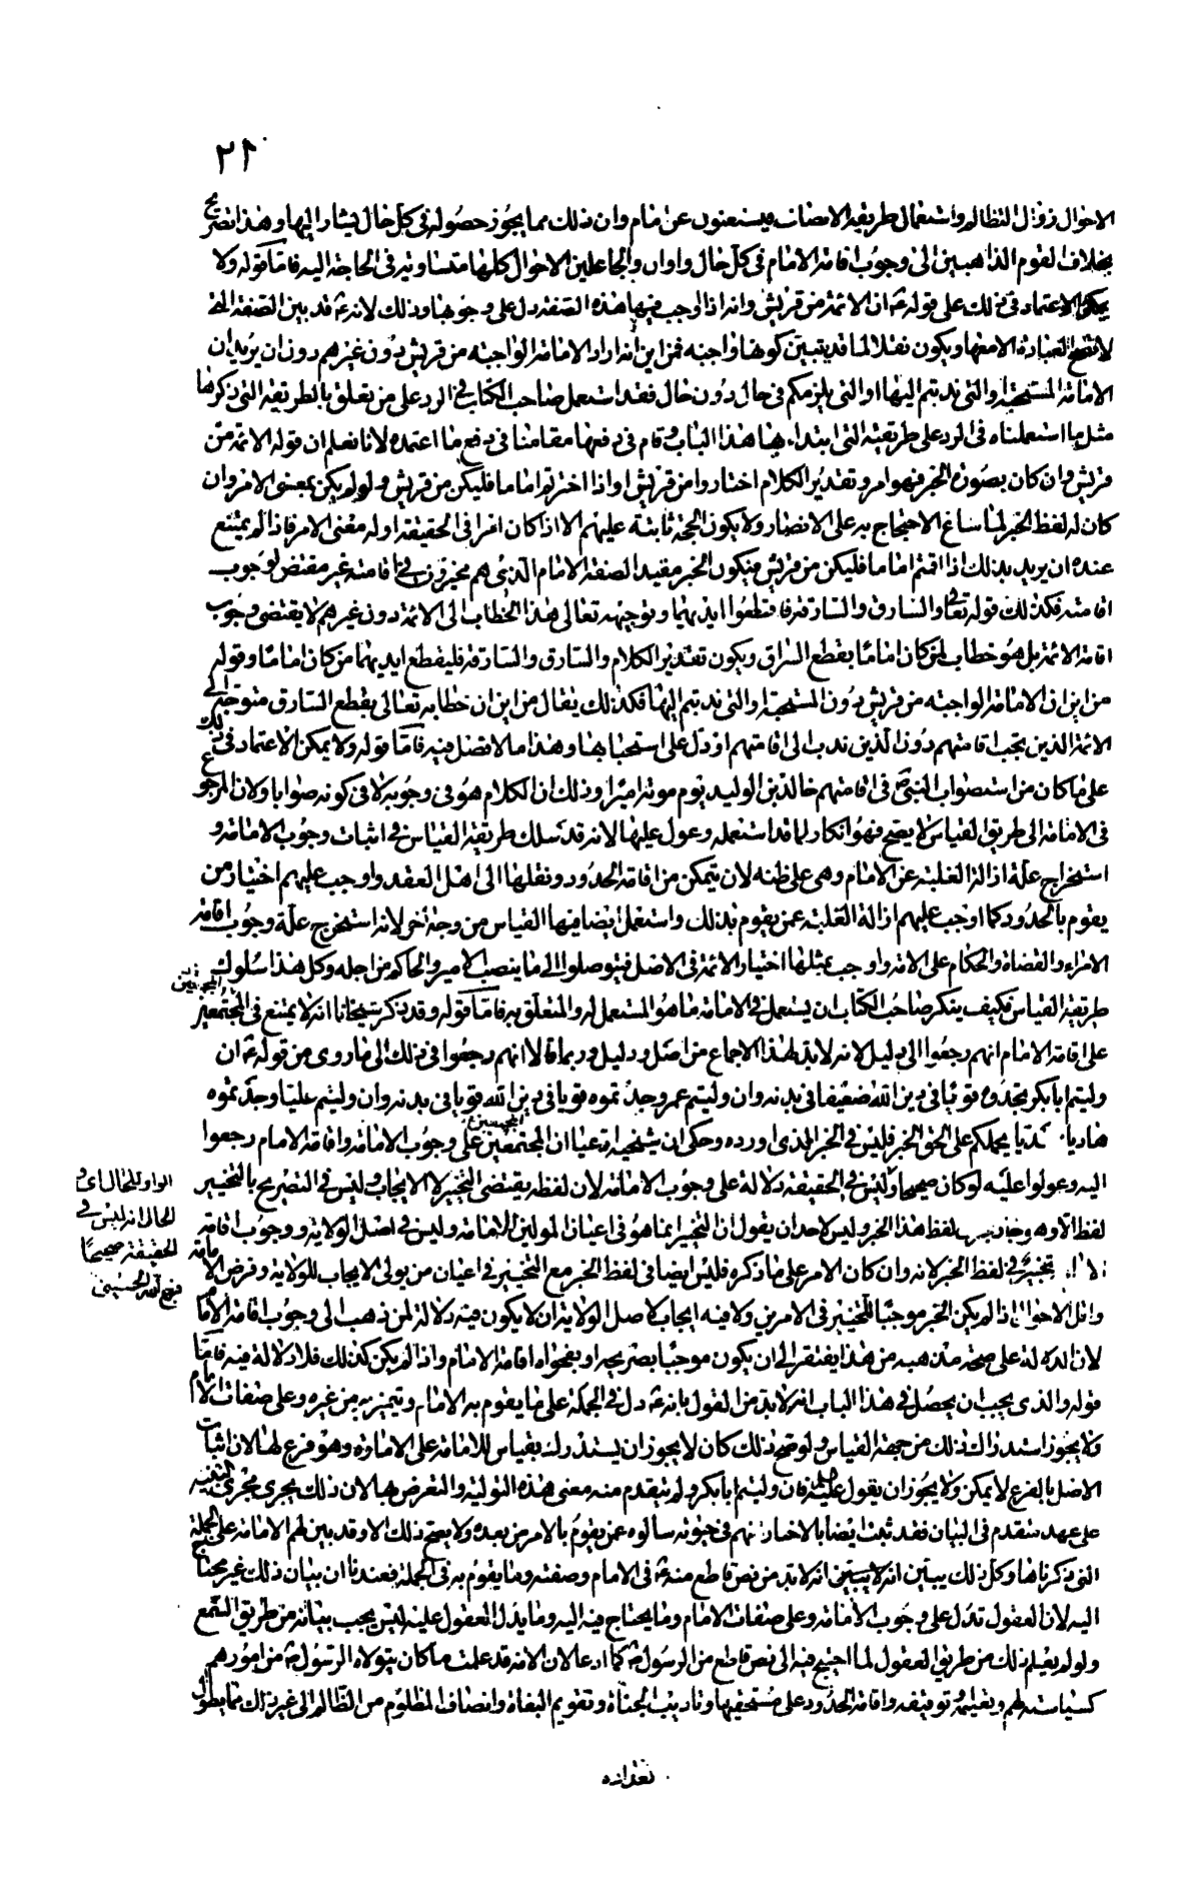 ٢١
الاحوال زوال التظالم واستعمال طريقة الانصاف فيستغنون عن امام وان ذلك مما يجوز حصوله في كل حال يشار اليها وهذا تصريح
بخلاف القوم الذاهبين الى وجوب اقامة الامام في كل حال واوان والجاعلين الاحوال كلها متساوية في الحاجة اليه فاما قوله ولا
يمكن الاعتماد في ذلك على قوله ع ان الائمة من قريش وانه اذا اوجب فيها هذه الصفة دل على وجوبها وذلك لانه ع قد بين الصفة التي
لا تصح العبادة الا معها ويكون نفلا لما قد يتبين كونها واجبة فمن اين انه اراد الامامة الواجبة من قريش دون غيرهم دون ان يريد ان
الامامة المستحبة والتي ندبتم اليها او التي يلزمكم في حال دون حال فقد استعمل صاحب الكتاب في الرد على من تعلق بالطريقة التي ذكرها
مثل ما استعملناه في الرد على طريقته التي ابتدا بها هذا الباب وقام في دفعها مقامنا في دفع ما اعتمده لانا نعلم ان قوله الائمة من
قريش وان كان بصورة الخبر فهو امر وتقدير الكلام اختاروا من قريش او اذا اخترتم اماما فليكن من قريش ولو لم يكن بمعنى الامر وان
كان له لفظ الخبر لما ساغ الاحتجاج به على الانصار ولا يكون الحجة ثابتة عليهم الا اذا كان امرا في الحقيقة او له معنى الامر فاذا لم يمتنع
عنده ان يريد بذلك اذا اقمتم اماما فليكن من قريش فيكون الخبر مفيدا لصفة الامام الذي هم مخيرون في اقامته غير مقتض لوجوب
اقامته فكذلك قوله تعالى والسارق والسارقة فاقطعوا ايديهما وتوجيهه تعالى هذا الخطاب الى الائمة دون غيرهم لا يقتضي وجوب
اقامة الائمة بل هو خطاب لمن كان اماما بقطع السراق ويكون تقدير الكلام والسارق والسارقة فليقطع ايديهما من كان اماما وقوله
من اين ان الامامة الواجبة من قريش دون المستحبة والتي ندبتم اليها فكذلك يقال من اين ان خطابه تعالى بقطع السارق متوجه الى
الائمة الذين يجب اقامتهم دون الذين ندب الى اقامتهم او دل على استحبابها وهذا ما لا فضل فيه فاما قوله ولا يمكن الاعتماد في ذلك
على ما كان من استصواب النبي ص في اقامتهم خالد بن الوليد يوم موتة اميرا وذلك ان الكلام هو في وجوبه لا في كونه صوابا ولان الرجوع
في الامامة الى طريق القياس لا يصح فهو انكار لما قد استعمله وعول عليها لانه قد سلك طريقة القياس في اثبات وجوب الامامة و
استخراج علة ازالة الغلبة عن الامام وهي على ظنه لان يتمكن من اقامة الحدود ونقلها الى اهل العقد واوجب عليهم اختيار من
يقوم بالحدود كما اوجب عليهم ازالة الغلبة عمن يقوم بذلك واستعمل ايضا فيها القياس من وجه اخر لانه استخرج علة وجوب اقامة
الامراء والقضاة والحكام على الامة واوجب بمثلها اختيار الائمة في الاصل فيتوصلوا الى ما ينصب الامير والحاكم من اجله وكل هذا سلوك
طريقة القياس فكيف ينكر صاحب الكتاب ان يستعمل في الامامة ما هو المستعمل له والمتعلق به فاما قوله وقد ذكر شيخانا انه لا يمتنع في المجتمعين
المجمعين
على اقامة الامام انهم رجعوا الى دليل لانه لا بد لهذا الاجماع من اصل ودليل وربما قالا انهم رجعوا في ذلك الى ما روى من قوله ع ان
وليتم ابا بكر تجدوه قويا في دين الله ضعيفا في بدنه وان وليتم عمر وجدتموه قويا في دين الله قويا في بدنه وان وليتم عليا وجدتموه
هاديا يحملكم على الحق الخبر فليس في الخبر الذي اورده وحكى ان شيخيه ادعيا ان المجتمعين على وجوب الامامة واقامة الامام رجعوا
المجمعين
اليه وعولوا عليه لو كان صحيحا وليس في الحقيقة دلالة على وجوب الامامة لان لفظه يقتضي التخيير لا الايجاب وليس في التصريح بالتخيير
لفظ الا وهو جار لفظ هذا الخبر وليس لاحد ان يقول ان التخيير انما هو في اعيان المولين للامامة وليس في اصل الولاية ووجوب اقامة
تخيير في لفظ الخبر لانه وان كان الامر على ما ذكره فليس ايضا في لفظ الخبر مع التخيير في اعيان من يولى الايجاب للولاية وفرض الامامة
واقل الاحوال اذ لم يكن الخبر موجبا للتخيير في الامرين ولا فيه ايجاب لاصل الولاية ان لا يكون فيه دلالة لمن ذهب الى وجوب اقامة الامام
لان الدلالة على صحة مذهبه من هذا يفتقر الى ان يكون موجبا بصريحه او بفحواه اقامة الامام واذا لم يكن كذلك فلا دلالة فيه فاما
قوله والذي يجب ان يحصل في هذا الباب انه لا بد من القول بانه ع دل في الجملة على ما يقوم به الامام ويتميز به من غيره وعلى صفات الامام
ولا يجوز استدراك ذلك من جهة القياس ولو صح ذلك كان لا يجوز ان يستدرك بقياس للامامة على الامارة وهو فرع لها لان اثبات
الاصل بالفرع لا يمكن ولا يجوز ان يقول ع فان وليتم ابا بكر ولم يتقدم منه معنى هذه التولية والتعرض بها لان ذلك يجري مجرى التنبيه
على عهد متقدم في البيان فقد ثبت ايضا بالاخبار انهم في حيوته سالوه عمن يقوم بالامر من بعده ولا يصح ذلك الا وقد بين لهم الامامة على الجملة
التي ذكرناها وكل ذلك يبين انه لا بد من نص قاطع منه ع في الامام وصفته وما يقوم به في الجملة فعندنا ان بيان ذلك غير محتاج
اليه لان العقول تدل على وجوب الامامة وعلى صفات الامام وما يحتاج فيه اليه وما يدل العقول عليه ليس يجب بيانه من طريق السمع
ولو لم يعلم ذلك من طريق العقول لما احتيج فيه الى نص قاطع من الرسول ص كما ادعا لان الامة قد علمت ما كان يتولاه الرسول ص من امورهم
كسياسته لهم وتعليمه وتوقيفه واقامة الحدود على مستحقيها وتاديب الجناة وتقويم البغاة وانصاف المظلوم من الظالم الى غير ذلك مما يطول
تعداده
الواو للحال اى و
الحال انه ليس في
الحقيقة صحيحا
فرج الله الحسيني